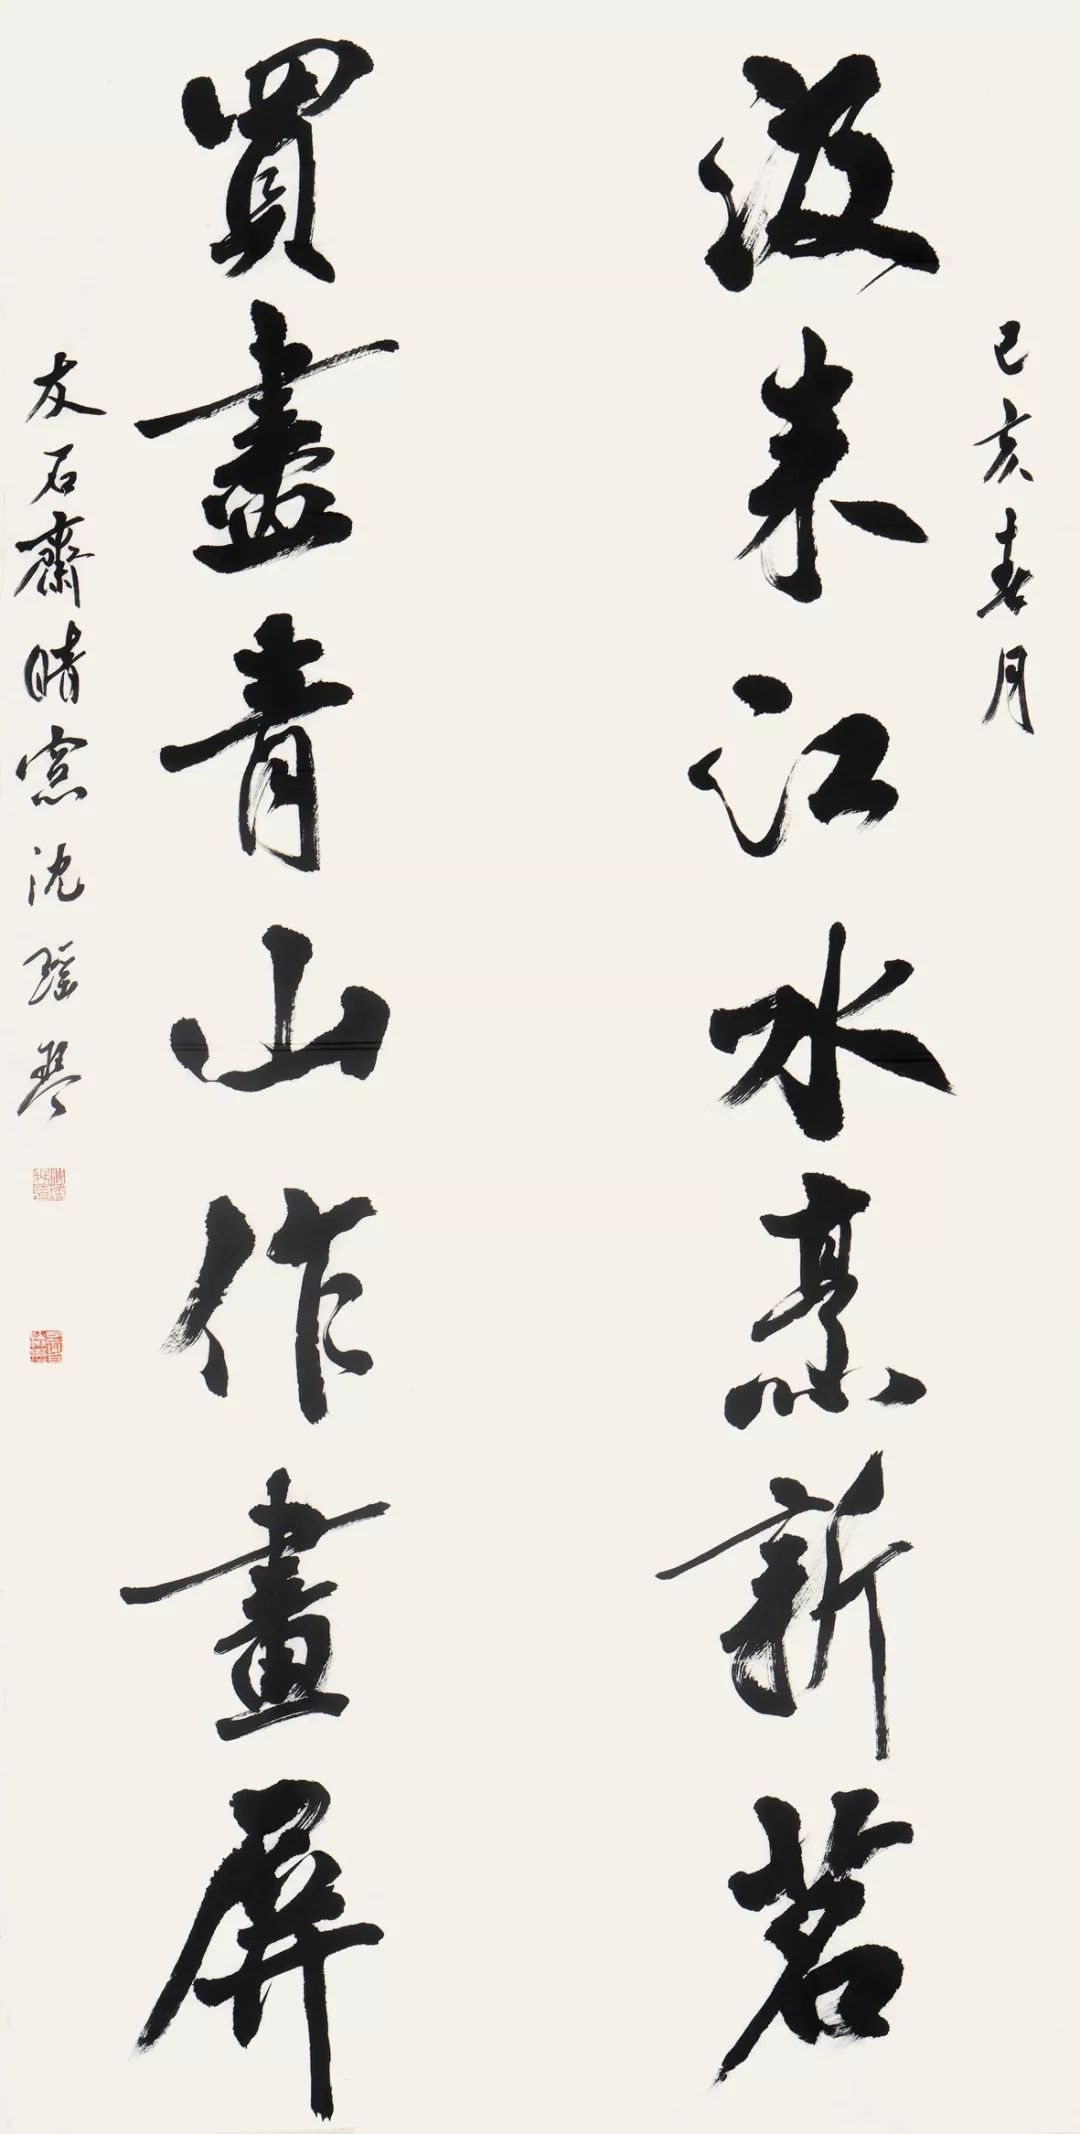 己亥春月
汲来江水烹新茗
買盡青山作畫屏
友石齋晴窓沈瑶琴